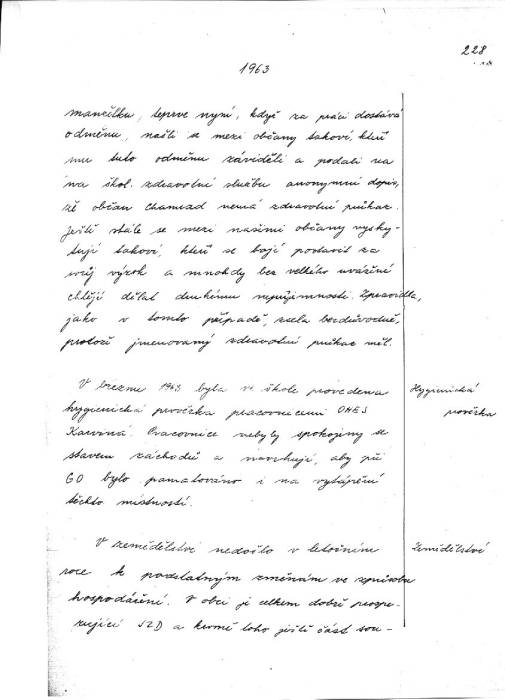 228
1963
manželku, teprve nyní, když za práci dostává
odměnu, našli se mezi občany takoví, kteří
mu tuto odměnu záviděli a podali na
na škol. zdravotní službu anonymní dopis,
že občan Chamrad nemá zdravotní průkaz.
Ještě stále se mezi našimi občany vysky-
tují takoví, kteří se bojí postavit za
svůj výrok a mnohdy bez velkého uvážení
chtějí dělat druhému nepříjemnosti. Zpravidla,
jako v tomto případě, zcela bezdůvodně,
protože jmenovaný zdravotní průkaz měl.
V březnu 1963 byla ve škole provedena
hygienická prověrka pracovnicemi OHES
Karviná. Pracovnice nebyly spokojeny se
stavem záchodů a navrhují, aby při
GO bylo pamatováno i na vytápění
těchto místností.
Hygienická
prověrka
V zemědělství nedošlo v letošním
roce k podstatným změnám ve způsobu
hospodaření. V obci je celkem dobře prospe-
rující JZD a kromě toho ještě část sou-
Zemědělství